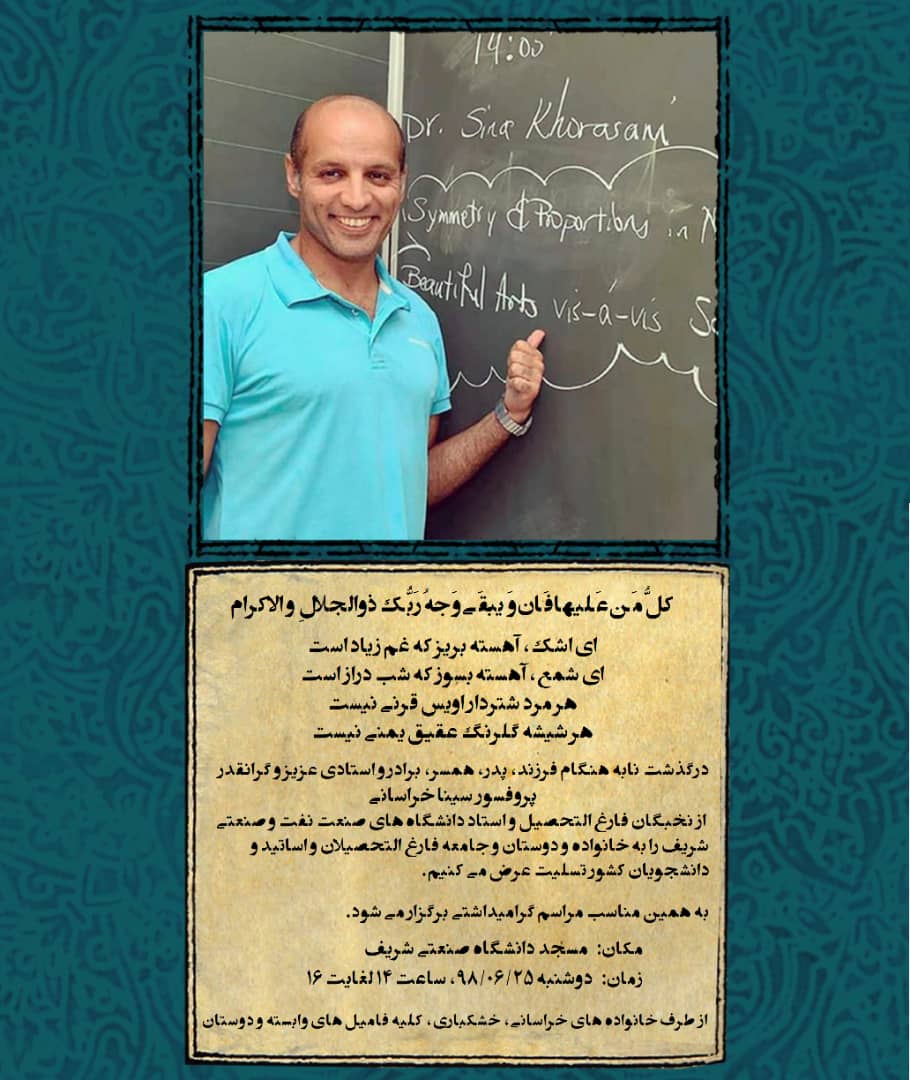 14:00
Dr. Sina Khorasani
Symmetry & Proportions in N
Beautiful Arts vis-á-vis Sc
كلُّ مَن عَليها فَان وَ يبقَي وَجهُ رَبُّك ذوالجلالِ و الاكرام
ای اشک، آهسته بریز که غم زیاد است
ای شمع، آهسته بسوز که شب دراز است
هر مرد شتردار اویس قرنی نیست
هر شیشه گلرنگ عقیق یمنی نیست
درگذشت نابه هنگام فرزند، پدر، همسر، برادر و استادی عزیز و گرانقدر
پروفسور سینا خراسانی
از نخبگان فارغ التحصیل و استاد دانشگاه های صنعت نفت و صنعتی
شریف را به خانواده و دوستان و جامعه فارغ التحصیلان و اساتید و
دانشجویان کشور تسلیت عرض می کنیم.
به همین مناسب مراسم گرامیداشتی برگزار می شود.
مکان: مسجد دانشگاه صنعتی شریف
زمان: دوشنبه ۹۸/۰۶/۲۵، ساعت ۱۴ لغایت ۱۶
از طرف خانواده های خراسانی، خشکباری، کلیه فامیل های وابسته و دوستان